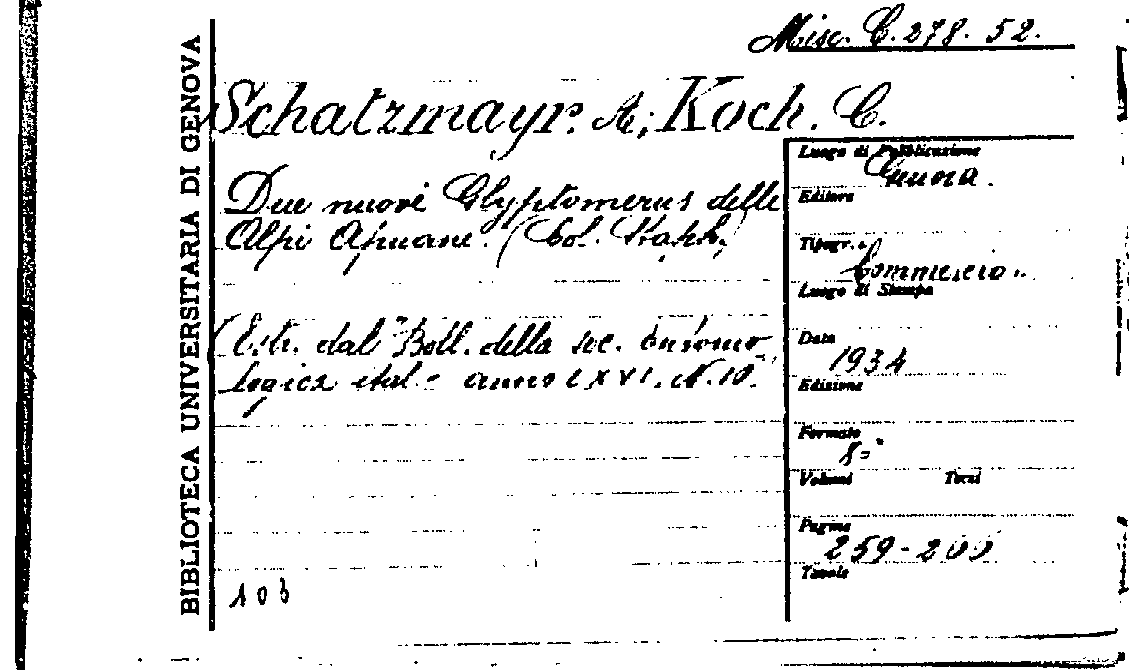 Misc. C. 278. 52.
BIBLIOTECA UNIVERSITARIA DI GENOVA
Schatzmayr. A; Koch. C.
Due nuovi Glyptomerus delle
Alpi Apuane. (Col. Staph.)
(Estr. dal "Boll. della soc. entomo
logica ital. - anno LXVI. N. 10."
103
Luogo di Pubblicazione
Genova.
Editore
Tipogr.
Commercio.
Luogo di Stampa
Data
1934
Edizione
Formato
8°
Volumi Tomi
Pagine
259-260
Tavole